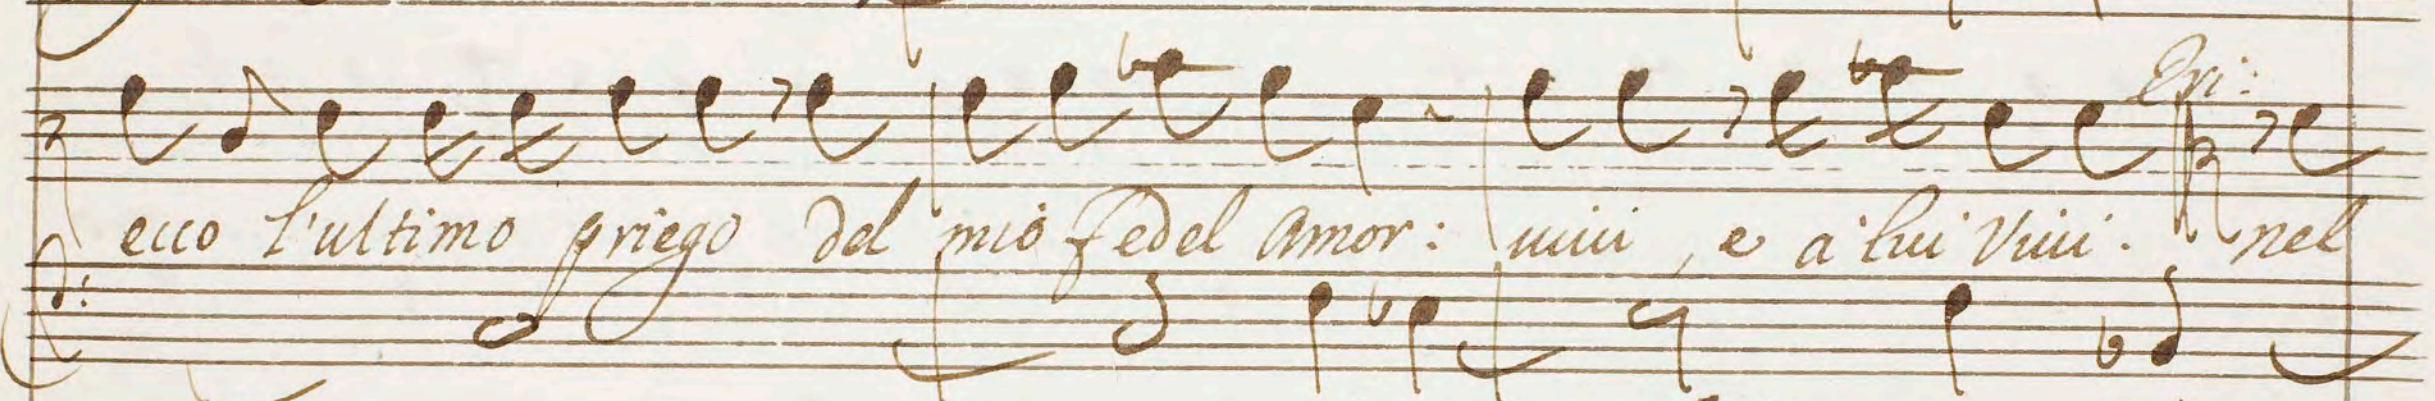 Eri:
ecco l'ultimo priego del mio fedel Amor: uiui, e a lui Viui. nel